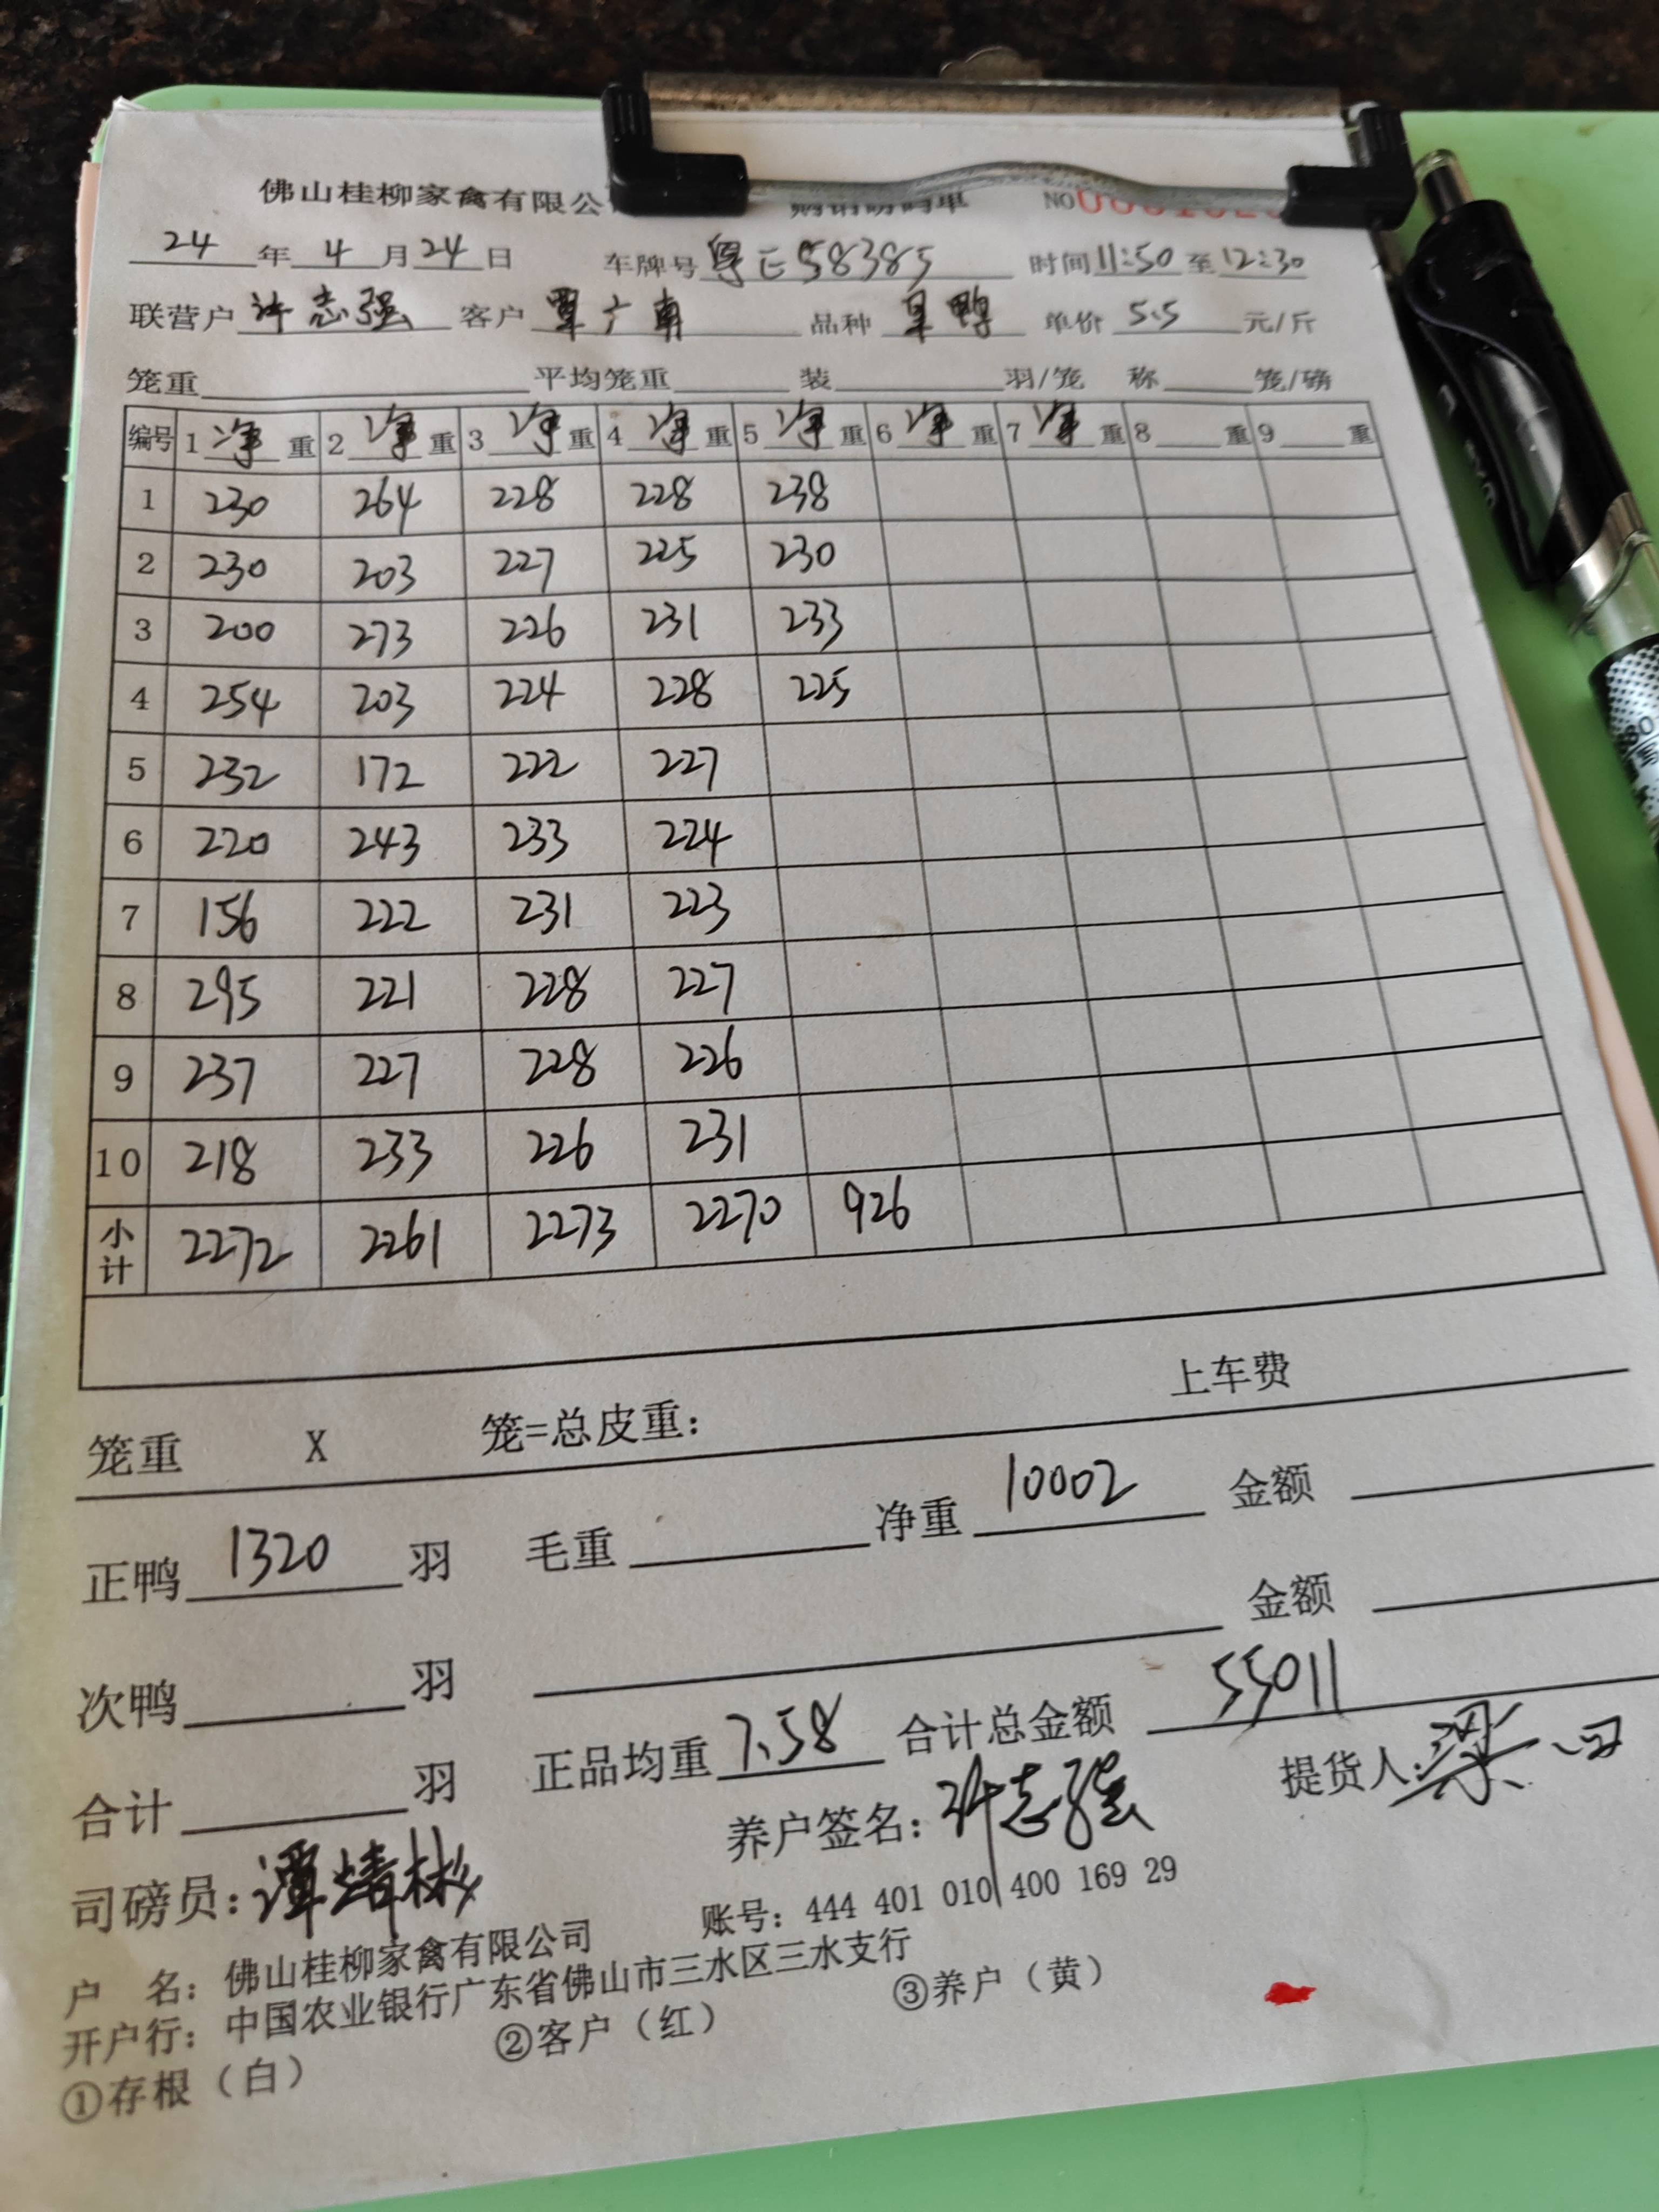 佛山桂柳家禽有限公 NO
24 年 4 月 24 日 车牌号 粤E58385 时间 11:50 至 12:30
联营户 许志强 客户 覃广南 品种 鸭 单价 5.5 元/斤
笼重 平均笼重 装 羽/笼 称 笼/磅
编号 1 净 重 2 净 重 3 净 重 4 净 重 5 净 重 6 净 重 7 净 重 8 重 9 重
1 230 264 228 228 238
2 230 203 227 225 230
3 200 273 226 231 233
4 254 203 224 228 225
5 232 172 222 227
6 220 243 233 224
7 156 222 231 223
8 295 221 228 227
9 237 227 228 226
10 218 233 226 231
小计 2272 2261 2273 2270 926
上车费
笼重 X 笼=总皮重：
正鸭 1320 羽 毛重 净重 10002 金额
次鸭 羽 金额
合计 羽 正品均重 7.58 合计总金额 55011
司磅员：谭靖彬 养户签名：许志强 提货人：梁
户 名：佛山桂柳家禽有限公司 账号：444 401 010 400 169 29
开户行：中国农业银行广东省佛山市三水区三水支行
①存根（白） ②客户（红） ③养户（黄）